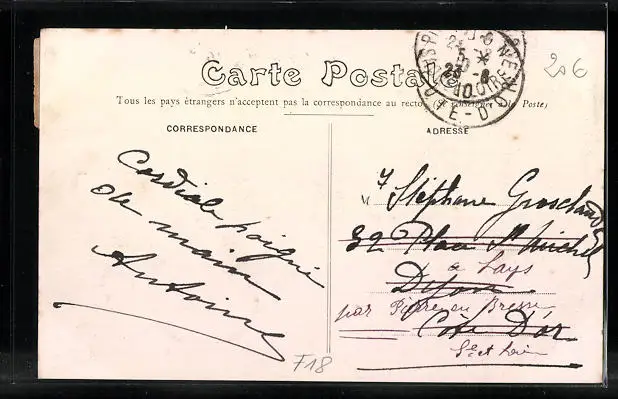 Carte Postale
Tous les pays étrangers n'acceptent pas la correspondance au recto (Se renseigner à la Poste)
CORRESPONDANCE
ADRESSE
20€
23-8
10
Cordiale poignée
de main
Antoine
M r Stéphane Groschaude
32 Place St Michel
à Lays
Dijon
par Pierre en Bresse
Côte D'or
S. et Loire
F18